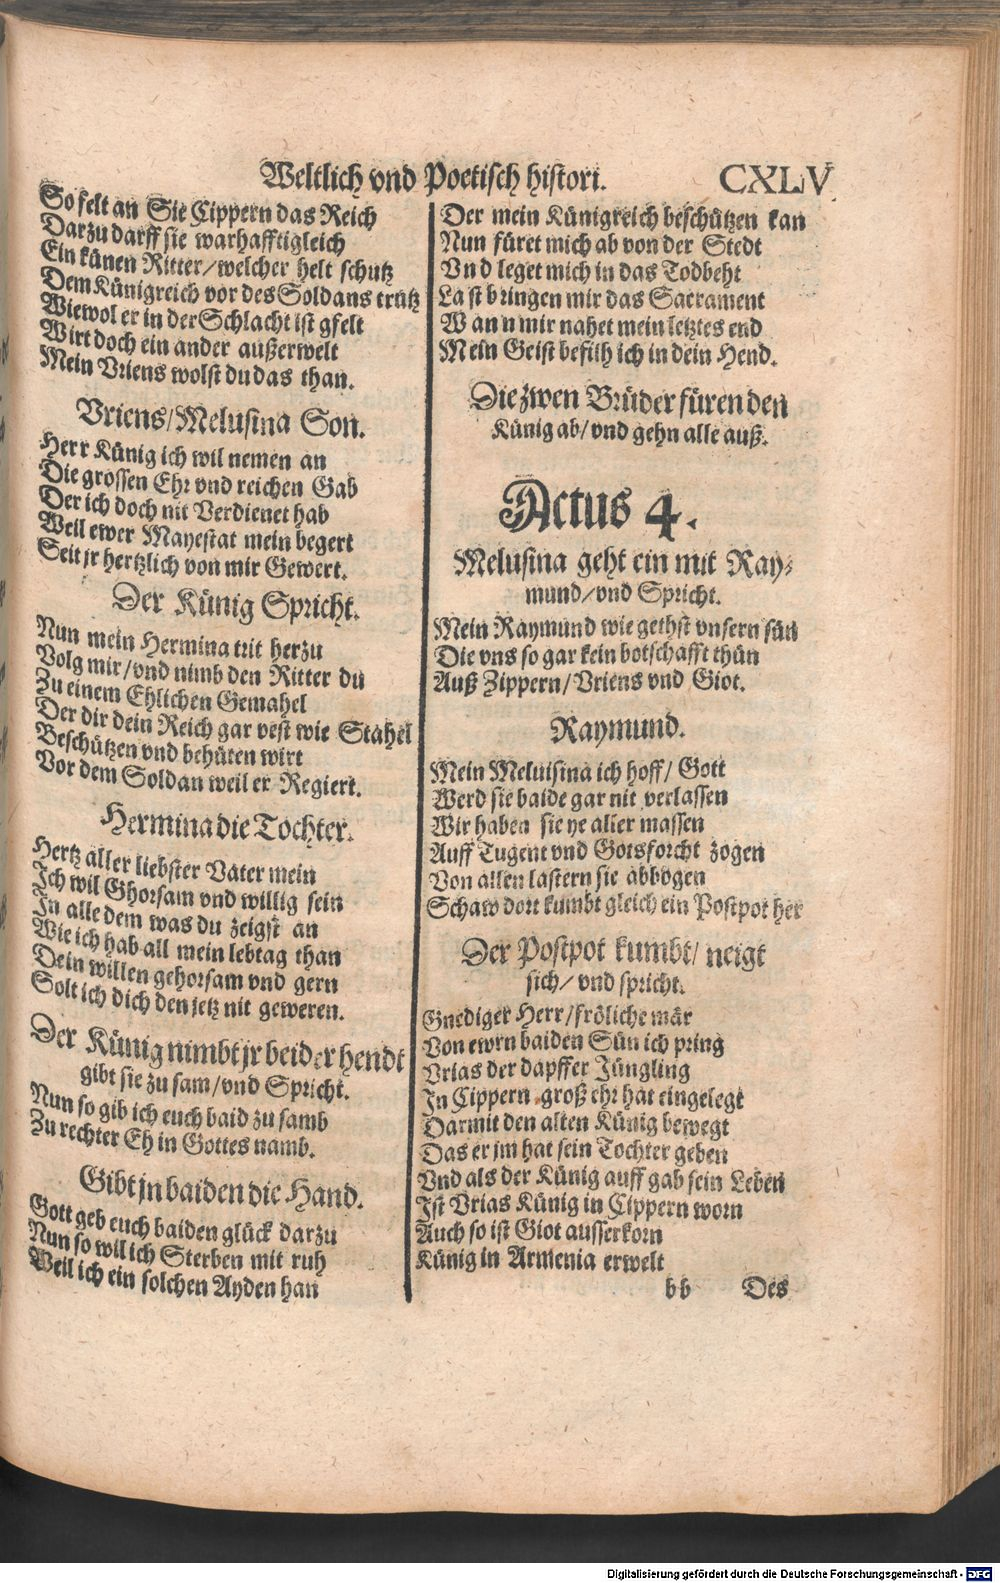 Weltlich vnd Poetisch histori.
CXLV
So felt an Sie Cippern das Reich
Darzu darff sie warhafftigleich
Ein känen Ritter/welcher helt schutz
Dem Künigreich vor des Soldans trutz
Wiewol er in der Schlacht ist gfelt
Wirt doch ein ander außerwelt
Mein Vriens wolst du das than.
Vriens/Melusina Son.
Herr Künig ich wil nemen an
Die grossen Ehr vnd reichen Gab
Der ich doch nit Verdienet hab
Weil ewer Mayestat mein begert
Seit jr hertzlich von mir Gewert.
Der Künig Spricht.
Nun mein Hermina trit herzu
Volg mir/vnd nimb den Ritter du
Zu einem Ehlichen Gemahel
Der dir dein Reich gar vest wie Stahel
Beschützen vnd behüten wirt
Vor dem Soldan weil er Regiert.
Hermina die Tochter.
Hertz aller liebster Vater mein
Ich wil Ghorsam vnd willig sein
In alle dem was du zeigst an
Wie ich hab all mein lebtag than
Dein willen gehorsam vnd gern
Solt ich dich den jetz nit geweren.
Der Künig nimbt jr beider hendt
gibt sie zu sam/vnd Spricht.
Nun so gib ich euch baid zu samb
Zu rechter Eh in Gottes namb.
Gibt jn baiden die Hand.
Gott geb euch baiden glück darzu
Nun so wil ich Sterben mit ruh
Weil ich ein solchen Ayden han
Der mein Künigreich beschützen kan
Nun füret mich ab von der Stedt
Vnd leget mich in das Todbeht
Last bringen mir das Sacrament
Wann mir nahet mein letztes end
Mein Geist befilh ich in dein Hend.
Die zwen Brüder füren den
Künig ab/vnd gehn alle auß.
Actus 4.
Melusina geht ein mit Ray-
mund/vnd Spricht.
Mein Raymund wie gethst vnsern sün
Die vns so gar kein botschafft thün
Auß Zippern/Vriens vnd Giot.
Raymund.
Mein Meluisina ich hoff/ Gott
Werd sie baide gar nit verlassen
Wir haben sie ye aller massen
Auff Tugent vnd Gotsforcht zogen
Von allen lastern sie abbogen
Schaw dort kumbt gleich ein Postpot her
Der Postpot kumbt/ neigt
sich/ vnd spricht.
Gnediger Herr/fröliche mär
Von ewrn baiden Sün ich pring
Vrias der dapffer Jüngling
In Cippern groß ehr hat eingelegt
Darmit den alten Künig bewegt
Das er jm hat sein Tochter geben
Vnd als der Künig auff gab sein Leben
Ist Vrias Künig in Cippern worn
Auch so ist Giot ausserkorn
Künig in Armenia erwelt
bb
Des
Digitalisierung gefördert durch die Deutsche Forschungsgemeinschaft - DFG